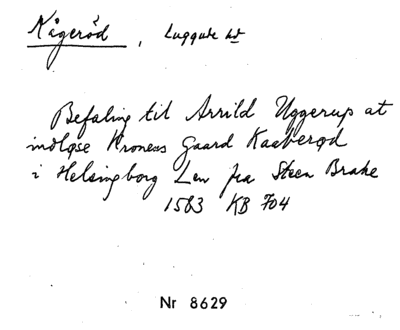 Kågeröd, Luggude hd
Befaling til Arrild Uggerup at
indløse Kronens Gaard Kaaberød
i Helsingborg Len fra Steen Brahe
1583 KB 704
Nr 8629